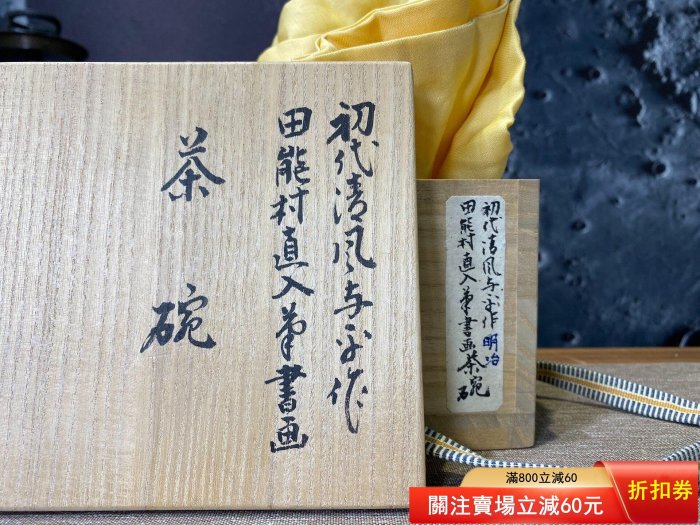 初代清风与平作
田能村直入筆書画
茶碗
初代清风与平作 明治
田能村直入筆書画茶碗
滿800立減60
關注賣場立減60元
折扣券